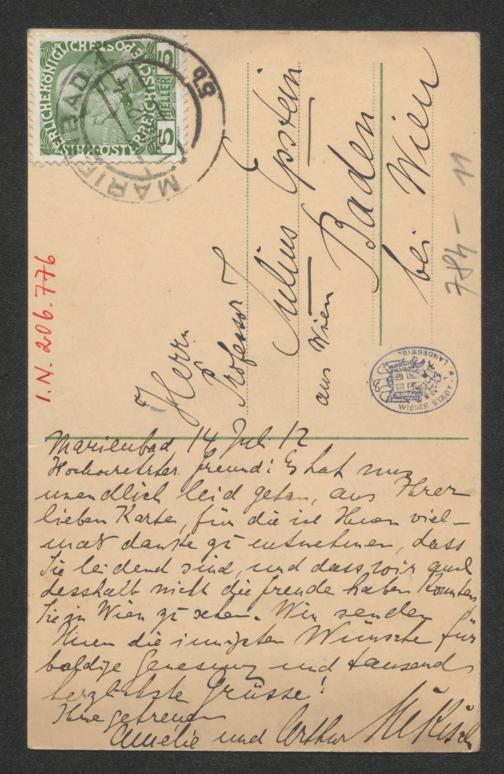 MARIENBAD 1
5 HELLER 5
I.N. 206.776
784- 11
Herrn
Professor J
Julius Epstein
aus Wien
Baden
bei Wien
WIENER STADT- U. LANDESBIBL.
Marienbad 14 Jul 12
Hochverehrter Freund! Es hat uns
unendlich leid getan, aus Ihrer
lieben Karte, für die ich Ihnen viel-
mals danke zu entnehmen, dass
Sie leidend sind, und dass wir auch
desshalb nicht die Freude haben konnten
Sie in Wien zu sehen. Wir senden
Ihnen die innigsten Wünsche für
baldige Genesung und tausend
herzlichste Grüsse!
Ihre getreuen
Amélie und Arthur Nikisch